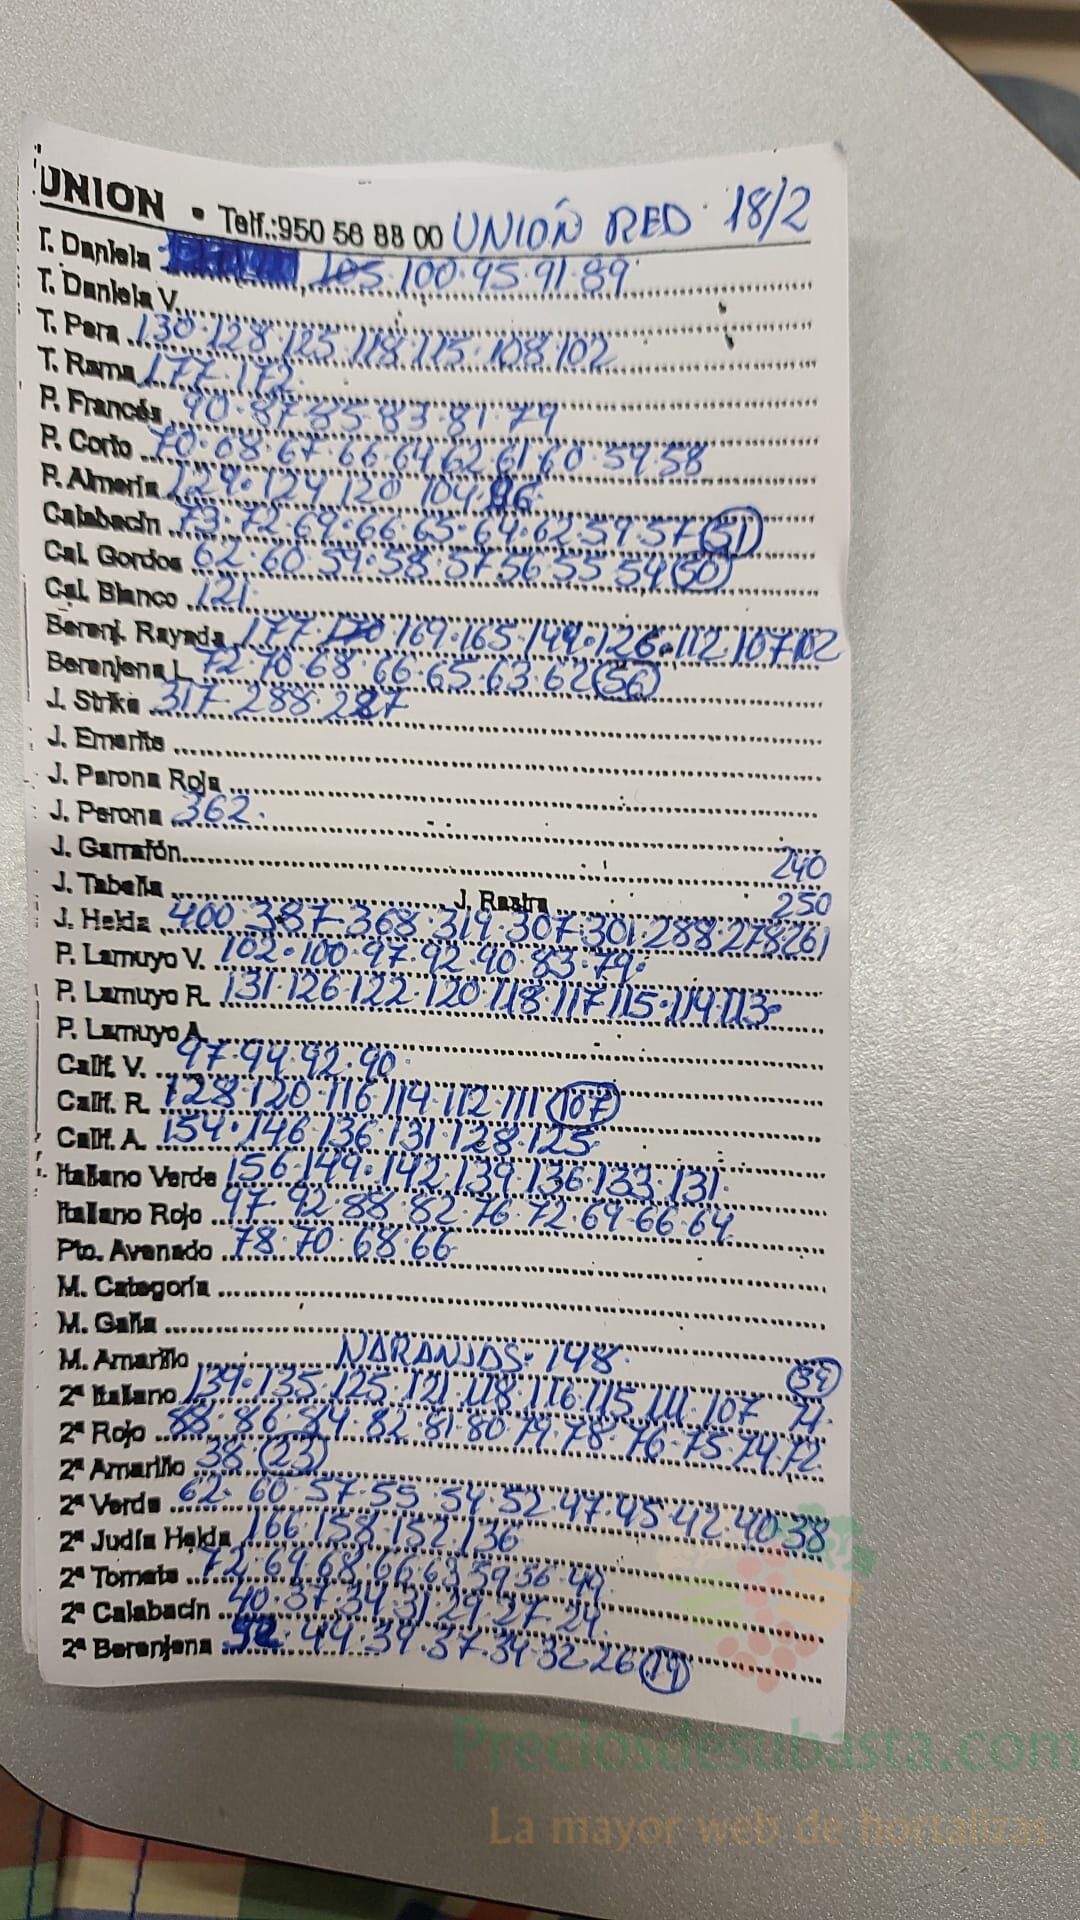 UNION • Telf.:950 56 88 00 UNIÓN RED · 18/2
T. Daniela 105·100·95·91·89
T. Daniela V.
T. Pera 130·128·125·118·115·108·102
T. Rama 177·172
P. Francés 90·87·85·83·81·79
P. Corto 70·68·67·66·64·62·61·60·59·58
P. Almería 129·124·120·104·96
Calabacín 73·72·69·66·65·64·62·59·57 (51)
Cal. Gordos 62·60·59·58·57·56·55·54 (50)
Cal. Blanco 121·
Berenj. Rayada 177·170·169·165·149·126·112·107·102
Berenjena L. 72·70·68·66·65·63·62 (56)
J. Strike 317·288·287
J. Emerite
J. Perona Roja
J. Perona 362·
J. Garrafón 240
J. Tabella J. Rastra 250
J. Helda 400·387·368·319·307·301·288·278·261
P. Lamuyo V. 102·100·97·92·90·83·79·
P. Lamuyo R. 131·126·122·120·118·117·115·114·113·
P. Lamuyo A.
Calif. V. 97·94·92·90·
Calif. R. 128·120·116·114·112·111 (107)
Calif. A. 154·146·136·131·128·125
Italiano Verde 156·149·142·139·136·133·131·
Italiano Rojo 97·92·88·82·76·72·69·66·64
Pto. Avenado 78·70·68·66
M. Categoría
M. Galia
M. Amarillo NARANJAS·148· (39)
2ª Italiano 139·135·125·121·118·116·115·111·107 71·
2ª Rojo 88·86·84·82·81·80·79·78·76·75·74·72
2ª Amarillo 38 (23)
2ª Verde 62·60·57·55·54·52·47·45·42·40·38
2ª Judía Helda 166·158·152·136
2ª Tomate 72·69·68·66·63·59·56·49
2ª Calabacín 40·37·34·31·29·27·24
2ª Berenjena 52·44·39·37·34·32·26 (19)
Preciosdesubasta.com
La mayor web de hortalizas